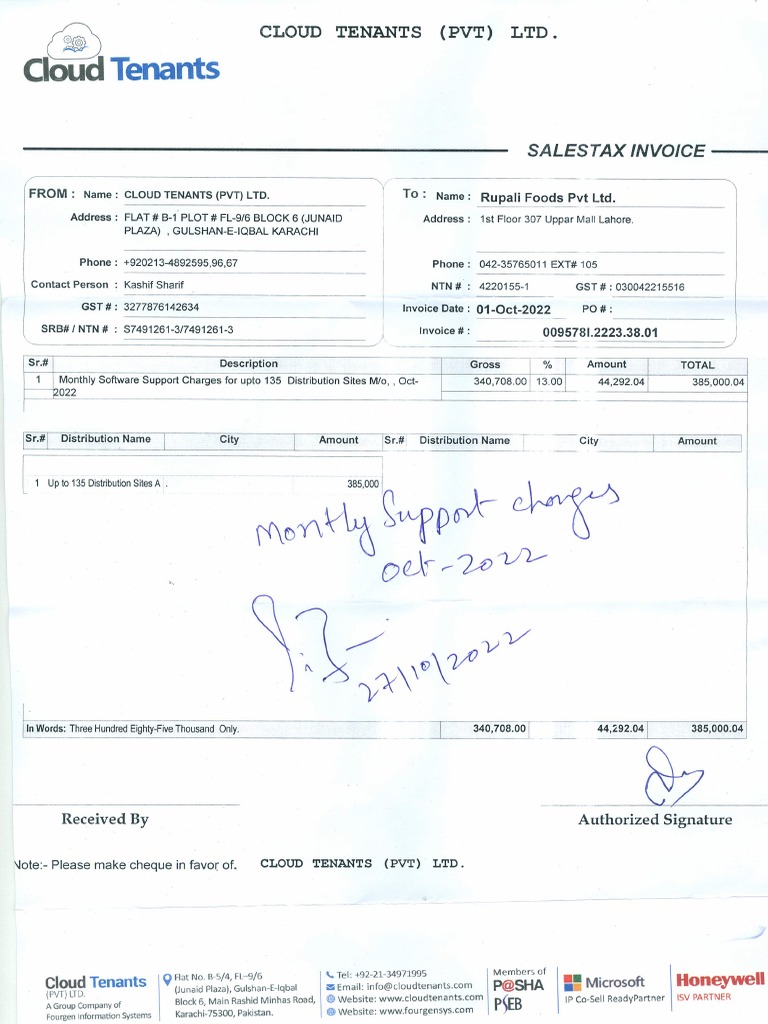 Cloud Tenants
CLOUD TENANTS (PVT) LTD.
SALESTAX INVOICE
FROM : Name : CLOUD TENANTS (PVT) LTD.
Address : FLAT # B-1 PLOT # FL-9/6 BLOCK 6 (JUNAID
PLAZA) , GULSHAN-E-IQBAL KARACHI
Phone : +920213-4892595,96,67
Contact Person : Kashif Sharif
GST # : 3277876142634
SRB# / NTN # : S7491261-3/7491261-3
To : Name : Rupali Foods Pvt Ltd.
Address : 1st Floor 307 Uppar Mall Lahore.
Phone : 042-35765011 EXT# 105
NTN # : 4220155-1 GST # : 030042215516
Invoice Date : 01-Oct-2022 PO # :
Invoice # : 009578I.2223.38.01
Sr.# Description Gross % Amount TOTAL
1 Monthly Software Support Charges for upto 135 Distribution Sites M/o, , Oct- 340,708.00 13.00 44,292.04 385,000.04
2022
Sr.# Distribution Name City Amount Sr.# Distribution Name City Amount
1 Up to 135 Distribution Sites A . 385,000
Montly Support charges
Oct-2022
27/10/2022
In Words: Three Hundred Eighty-Five Thousand Only. 340,708.00 44,292.04 385,000.04
Received By Authorized Signature
Note:- Please make cheque in favor of. CLOUD TENANTS (PVT) LTD.
Cloud Tenants
(PVT) LTD.
A Group Company of
Fourgen Information Systems
Flat No. B-5/4, FL-9/6
(Junaid Plaza), Gulshan-E-Iqbal
Block 6, Main Rashid Minhas Road,
Karachi-75300, Pakistan.
Tel: +92-21-34971995
Email: info@cloudtenants.com
Website: www.cloudtenants.com
Website: www.fourgensys.com
Members of
P@SHA
PSEB
Microsoft
IP Co-Sell ReadyPartner
Honeywell
ISV PARTNER